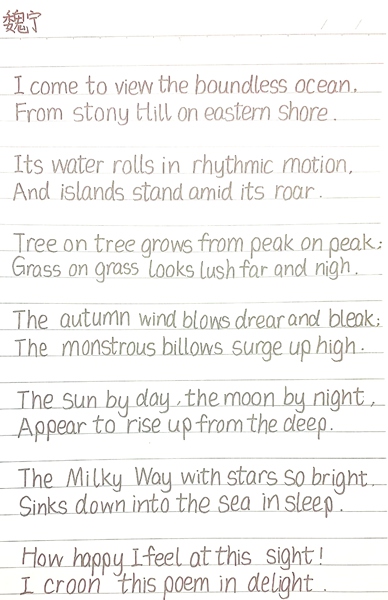 魏宁
I come to view the boundless ocean,
From stony Hill on eastern shore.
Its water rolls in rhythmic motion,
And islands stand amid its roar.
Tree on tree grows from peak on peak;
Grass on grass looks lush far and nigh.
The autumn wind blows drear and bleak;
The monstrous billows surge up high.
The sun by day, the moon by night,
Appear to rise up from the deep.
The Milky Way with stars so bright.
Sinks down into the sea in sleep.
How happy I feel at this sight!
I croon this poem in delight.